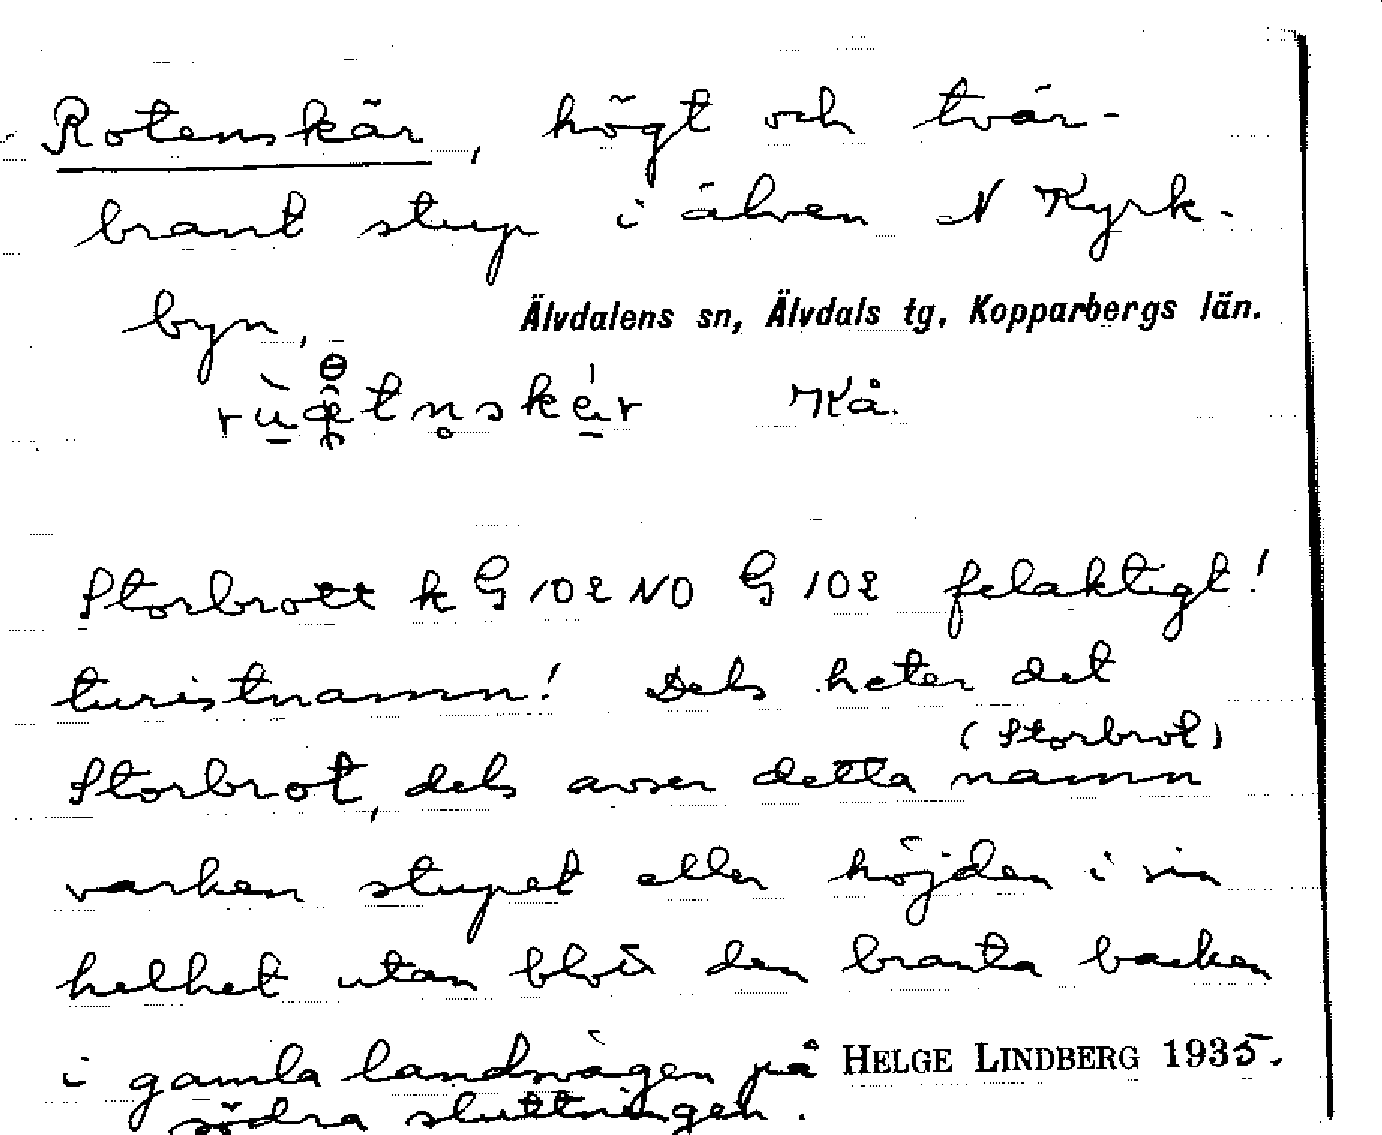 Rotenskär, högt och tvär-
brant stup i älven N Kyrk-
byn,
Älvdalens sn, Älvdals tg, Kopparbergs län.
Kå.
Storbrott k G 102 NO G 102 felaktigt!
turistnamn! Dels heter det
(Storbrot)
Storbrot, dels avser detta namn
varken stupet eller höjden i sin
helhet utan blott den branta backen
i gamla landsvägen på
HELGE LINDBERG 1935.
södra sluttningen.